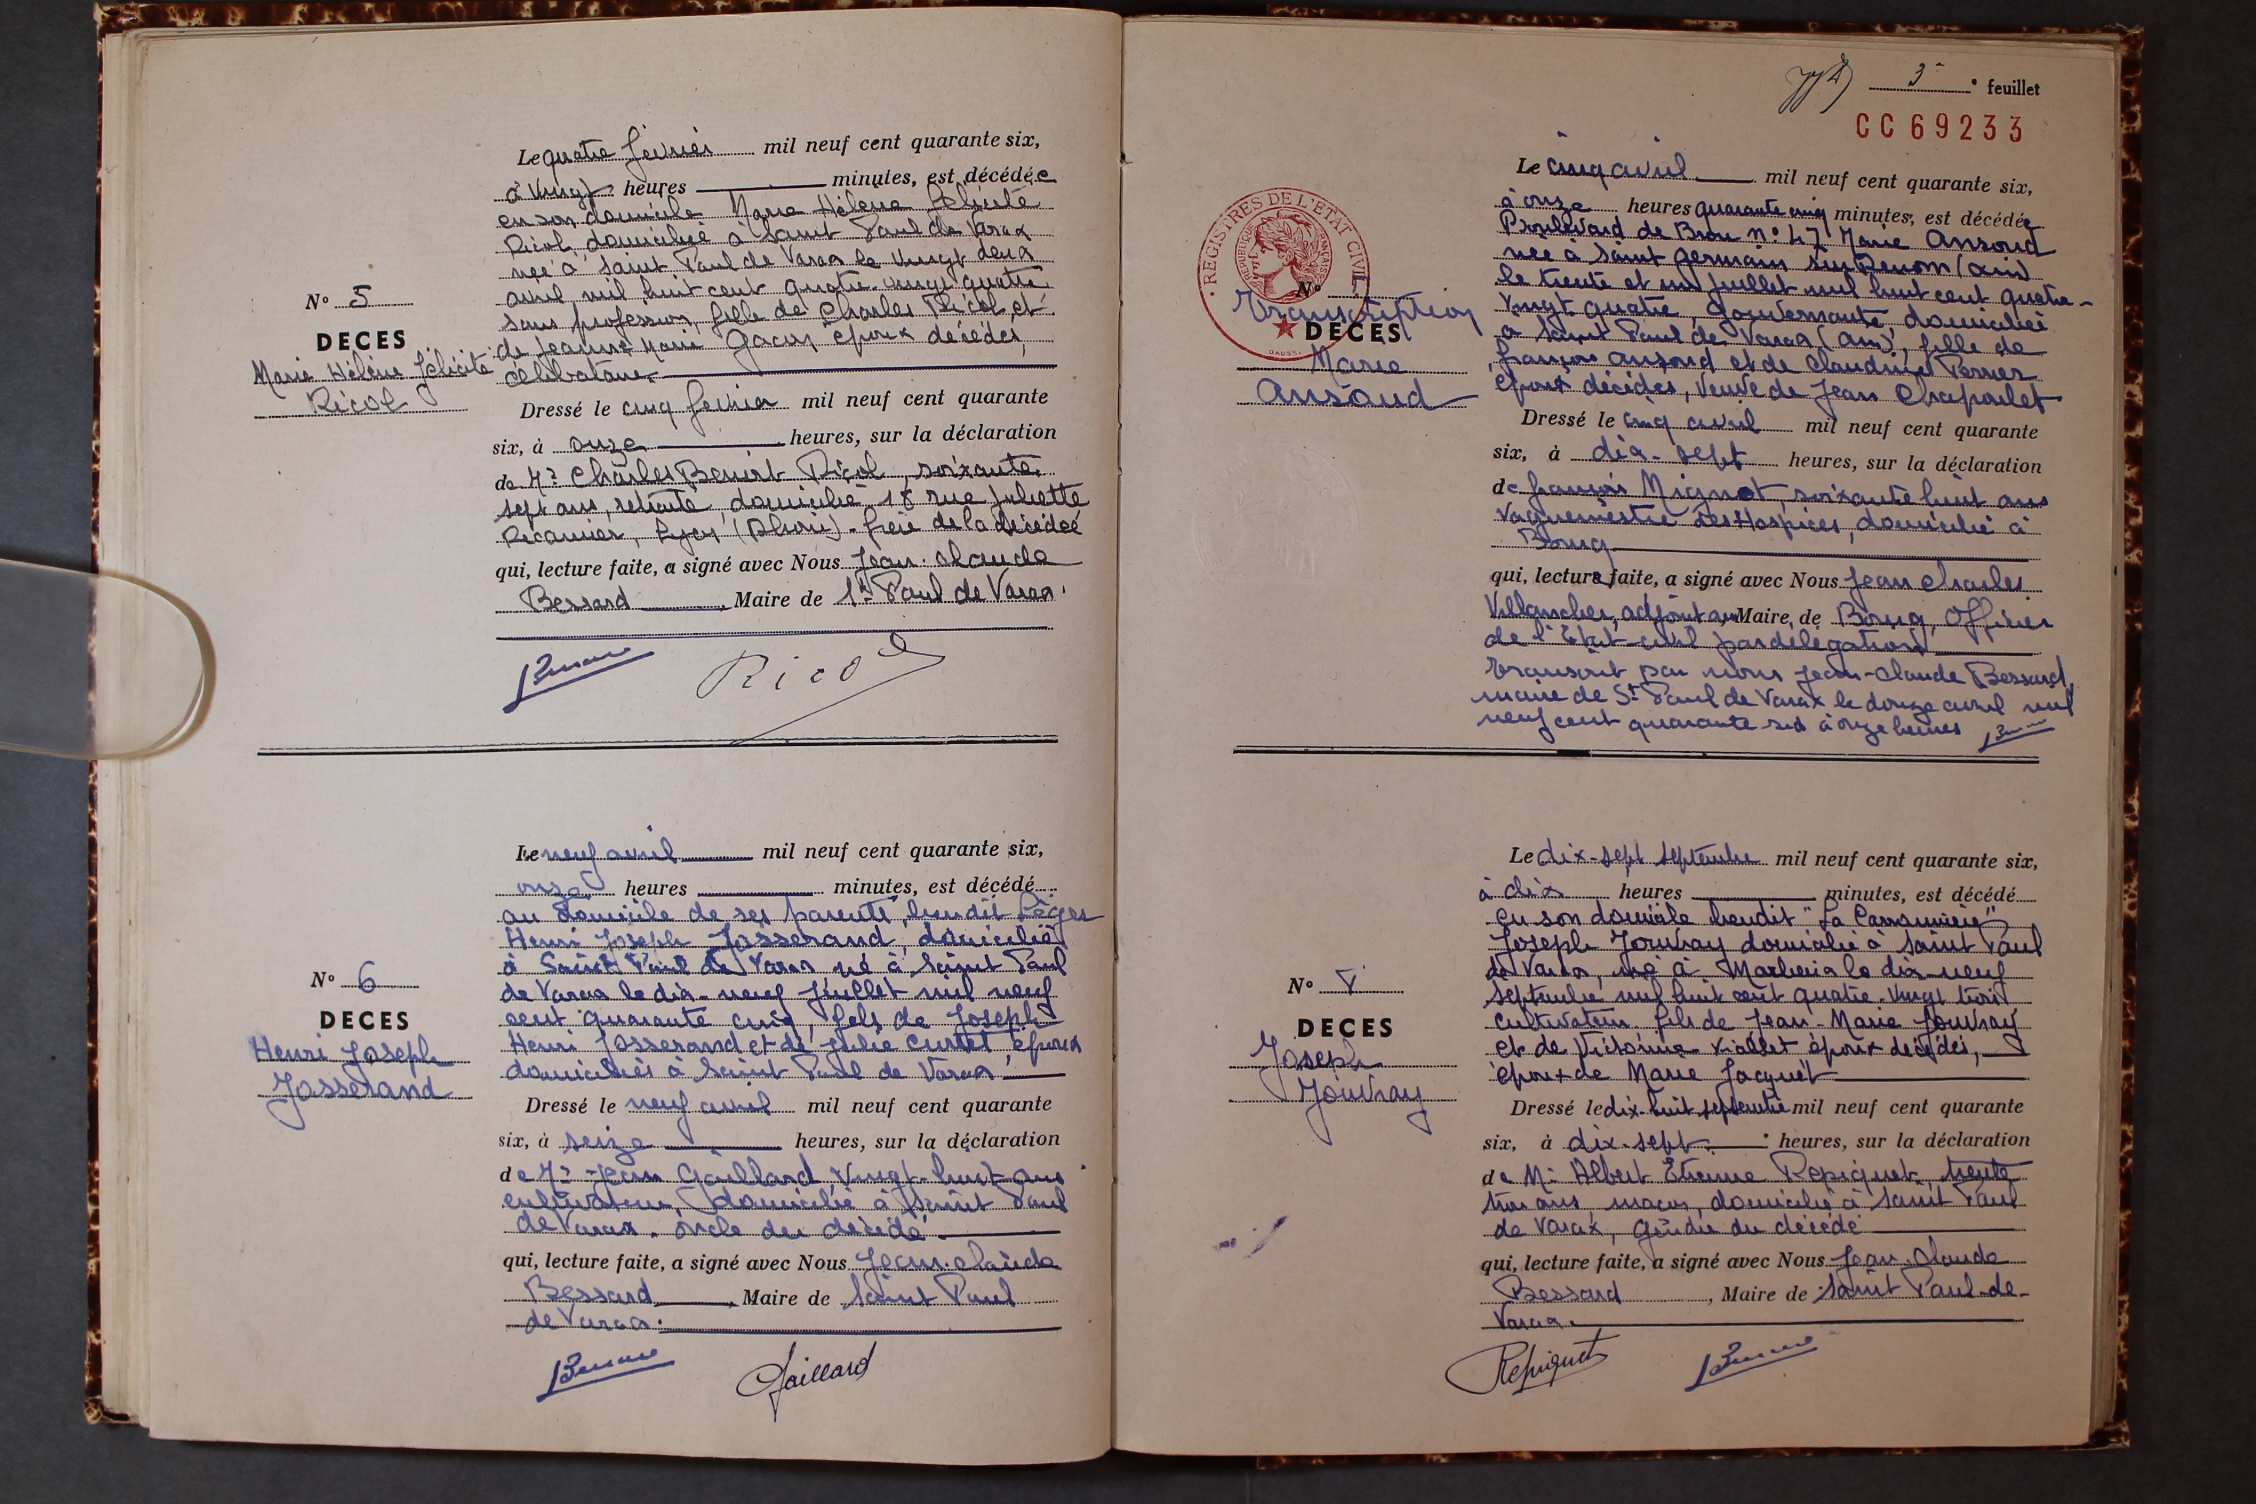 Le quatre février mil neuf cent quarante six,
à vingt heures minutes, est décédée
en son domicile Marie Hélène Félicité
Ricol, domiciliée à Saint Paul de Varax
née à Saint Paul de Varax le vingt deux
avril mil huit cent quatre-vingt quatre
sans profession, fille de Charles Ricol et
de Jeanne Marie Gacon époux décédés,
célibataire.
N° 5
DECES
Marie Hélène Félicité
Ricol
Dressé le cinq février mil neuf cent quarante
six, à onze heures, sur la déclaration
de Mr Charles Benoit Ricol, soixante
sept ans, retraité, domicilié 18 rue Juliette
Récamier, Lyon (Rhône). frère de la décédée
qui, lecture faite, a signé avec Nous Jean-Claude
Bessard, Maire de St Paul de Varax.
Ricol
Le neuf avril mil neuf cent quarante six,
onze heures minutes, est décédé
au domicile de ses parents, lieu dit Léger
Henri Joseph Josserand, domicilié
à Saint Paul de Varax né à Saint Paul
de Varax le dix-neuf juillet mil neuf
cent quarante cinq, fils de Joseph
Henri Josserand et de Julie Curtet, époux
domiciliés à Saint Paul de Varax
N° 6
DECES
Henri Joseph
Josserand
Dressé le neuf avril mil neuf cent quarante
six, à seize heures, sur la déclaration
de Mr Jean Gaillard, vingt-huit ans
cultivateur, domicilié à Saint Paul
de Varax. oncle du décédé.
qui, lecture faite, a signé avec Nous Jean-Claude
Bessard, Maire de Saint Paul
de Varax.
Gaillard
3e feuillet
CC 69233
Le cinq avril mil neuf cent quarante six,
à onze heures quarante cinq minutes, est décédée
Boulevard de Brou n° 47 Marie Ansoud
née à Saint Germain sur Renon (Ain)
le trente et un juillet mil huit cent quatre-
vingt quatre, gouvernante, domiciliée
à Saint Paul de Varax (Ain), fille de
François Ansoud et de Claudine Perner
époux décédés, veuve de Jean Chapoulet
REGISTRES DE L'ETAT CIVIL
REPUBLIQUE FRANÇAISE
N°
Transcription
DECES
Marie
Ansoud
Dressé le cinq avril mil neuf cent quarante
six, à dix-sept heures, sur la déclaration
de François Mignot, soixante huit ans
vaguemestre des Hospices, domicilié à
Bourg
qui, lecture faite, a signé avec Nous Jean Charles
adjoint au Maire de Bourg, Officier
de l'Etat-civil par délégation
Transcrit par nous Jean-Claude Bessard,
maire de St Paul de Varax le douze avril mil
neuf cent quarante six à onze heures
Le dix-sept septembre mil neuf cent quarante six,
à dix heures minutes, est décédé
en son domicile lieudit "La Carronnière"
Joseph Jouvray domicilié à Saint Paul
de Varax, né à Marlieux le dix-neuf
septembre mil huit cent quatre-vingt trois
cultivateur fils de Jean-Marie Jouvray
et de Victorine Viallet époux décédés,
époux de Marie Jacquet
N° 7
DECES
Joseph
Jouvray
Dressé le dix-huit septembre mil neuf cent quarante
six, à dix-sept heures, sur la déclaration
de Mr Albert Etienne Repiquet, trente
trois ans, maçon, domicilié à Saint Paul
de Varax, gendre du décédé
qui, lecture faite, a signé avec Nous Jean-Claude
Bessard, Maire de Saint Paul-de-
Varax.
Repiquet